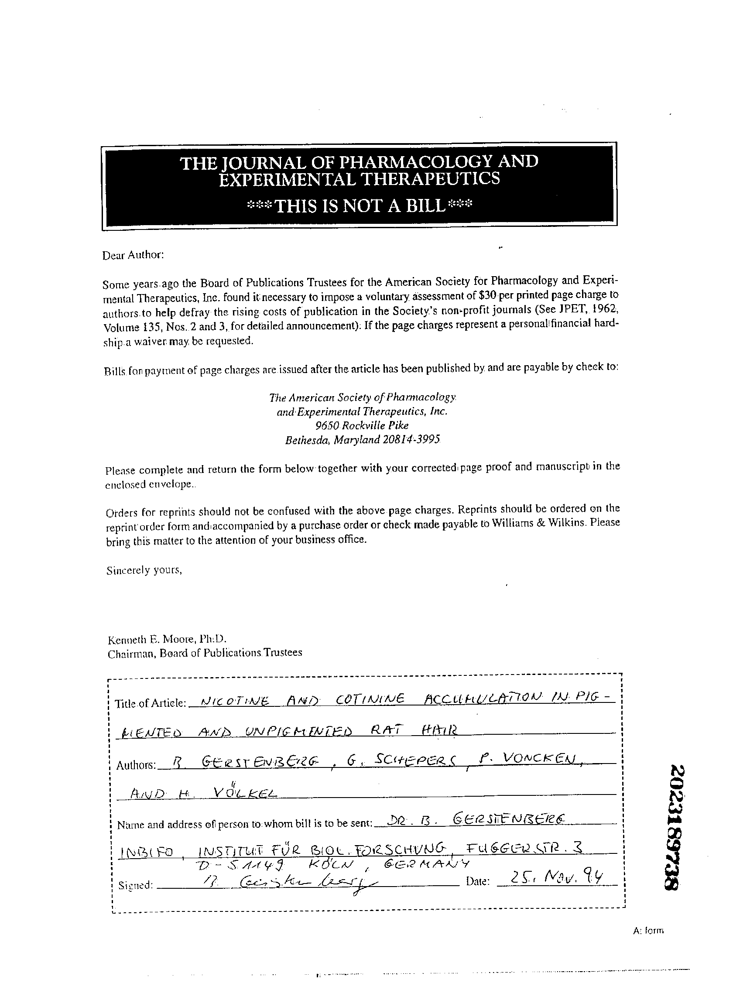 THE JOURNAL OF PHARMACOLOGY AND
EXPERIMENTAL THERAPEUTICS
***THIS IS NOT A BILL***
Dear Author:
Some years ago the Board of Publications Trustees for the American Society for Pharmacology and Experi-
mental Therapeutics, Inc. found it necessary to impose a voluntary assessment of $30 per printed page charge to
authors to help defray the rising costs of publication in the Society's non-profit journals (See JPET, 1962,
Volume 135, Nos. 2 and 3, for detailed announcement). If the page charges represent a personal financial hard-
ship a waiver may be requested.
Bills for payment of page charges are issued after the article has been published by and are payable by check to:
The American Society of Pharmacology
and Experimental Therapeutics, Inc.
9650 Rockville Pike
Bethesda, Maryland 20814-3995
Please complete and return the form below together with your corrected page proof and manuscript in the
enclosed envelope.
Orders for reprints should not be confused with the above page charges. Reprints should be ordered on the
reprint order form and accompanied by a purchase order or check made payable to Williams & Wilkins. Please
bring this matter to the attention of your business office.
Sincerely yours,
Kenneth E. Moore, Ph.D.
Chairman, Board of Publications Trustees
Title of Article: NICOTINE AND COTININE ACCUMULATION IN PIG-
MENTED AND UNPIGMENTED RAT HAIR
Authors: B. GERSTENBERG, G. SCHEPERS, P. VONCKEN,
AND H. VÖLKEL
Name and address of person to whom bill is to be sent: DR. B. GERSTENBERG
INBIFO, INSTITUT FÜR BIOL. FORSCHUNG, FUGGERSTR. 3
D-51149 KÖLN, GERMANY
Signed: B. Gerstenberg Date: 25. Nov. 94
A: form
2023189738